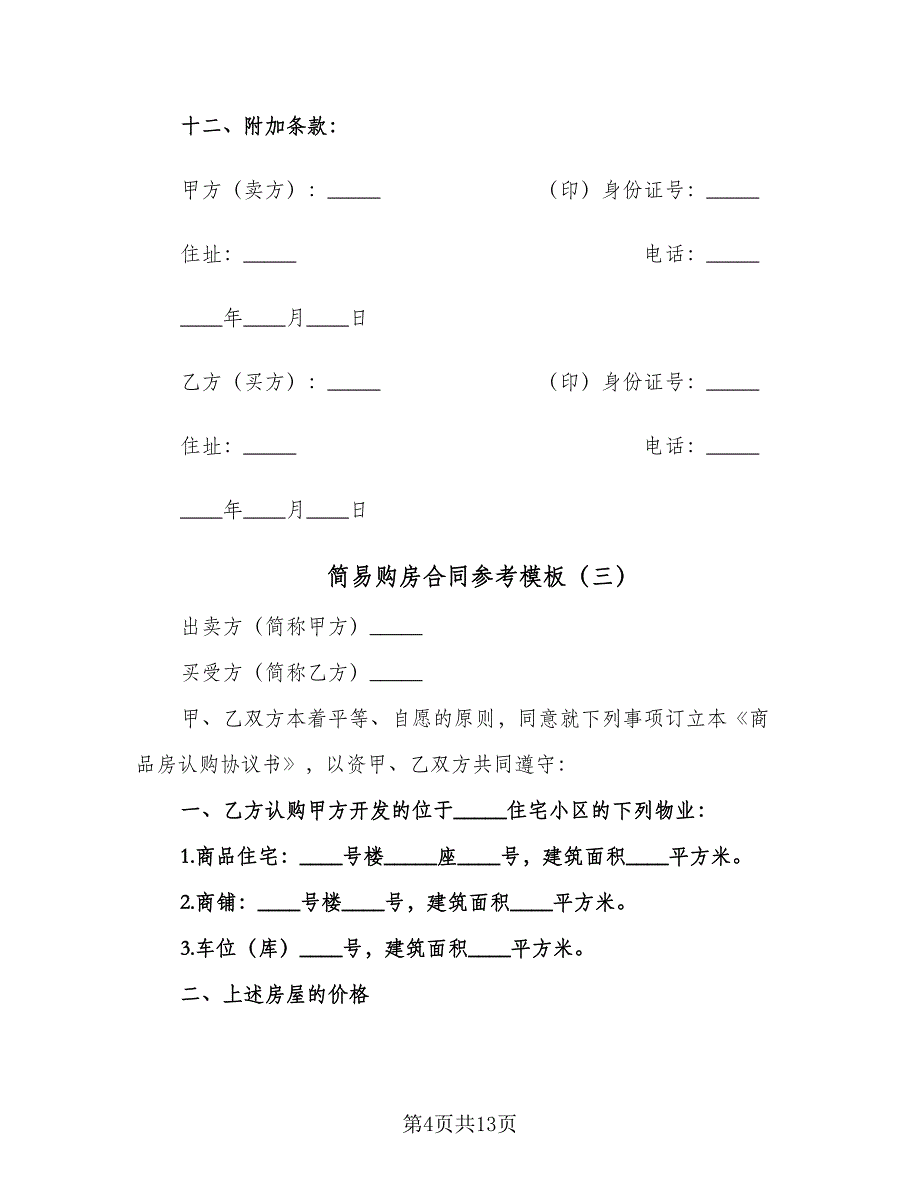 十二、附加条款：
甲方（卖方）：_____ （印）身份证号：_____
住址：_____ 电话：_____
____年____月____日
乙方（买方）：_____ （印）身份证号：_____
住址：_____ 电话：_____
____年____月____日
简易购房合同参考模板（三）
出卖方（简称甲方）_____
买受方（简称乙方）_____
甲、乙双方本着平等、自愿的原则，同意就下列事项订立本《商
品房认购协议书》，以资甲、乙双方共同遵守：
一、乙方认购甲方开发的位于_____住宅小区的下列物业：
1.商品住宅：____号楼_____座____号，建筑面积____平方米。
2.商铺：____号楼____号，建筑面积____平方米。
3.车位（库）____号，建筑面积____平方米。
二、上述房屋的价格
第4页共13页